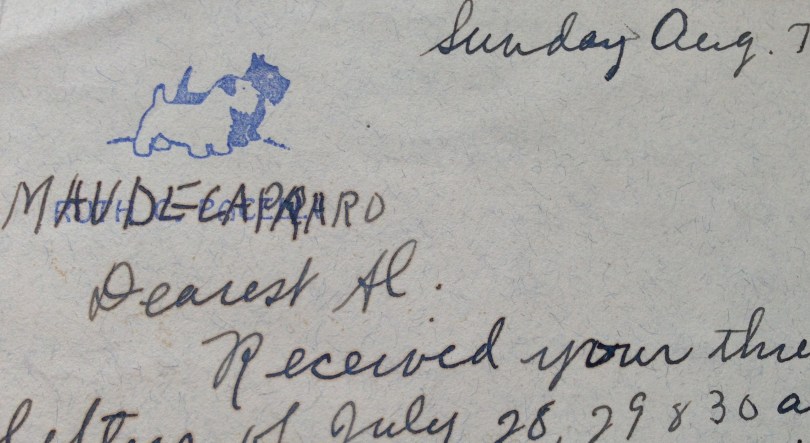 Sunday Aug. 7
MAUDE CAPPARO
Dearest Al.
Received your thre
letters of July 28, 29 & 30 a